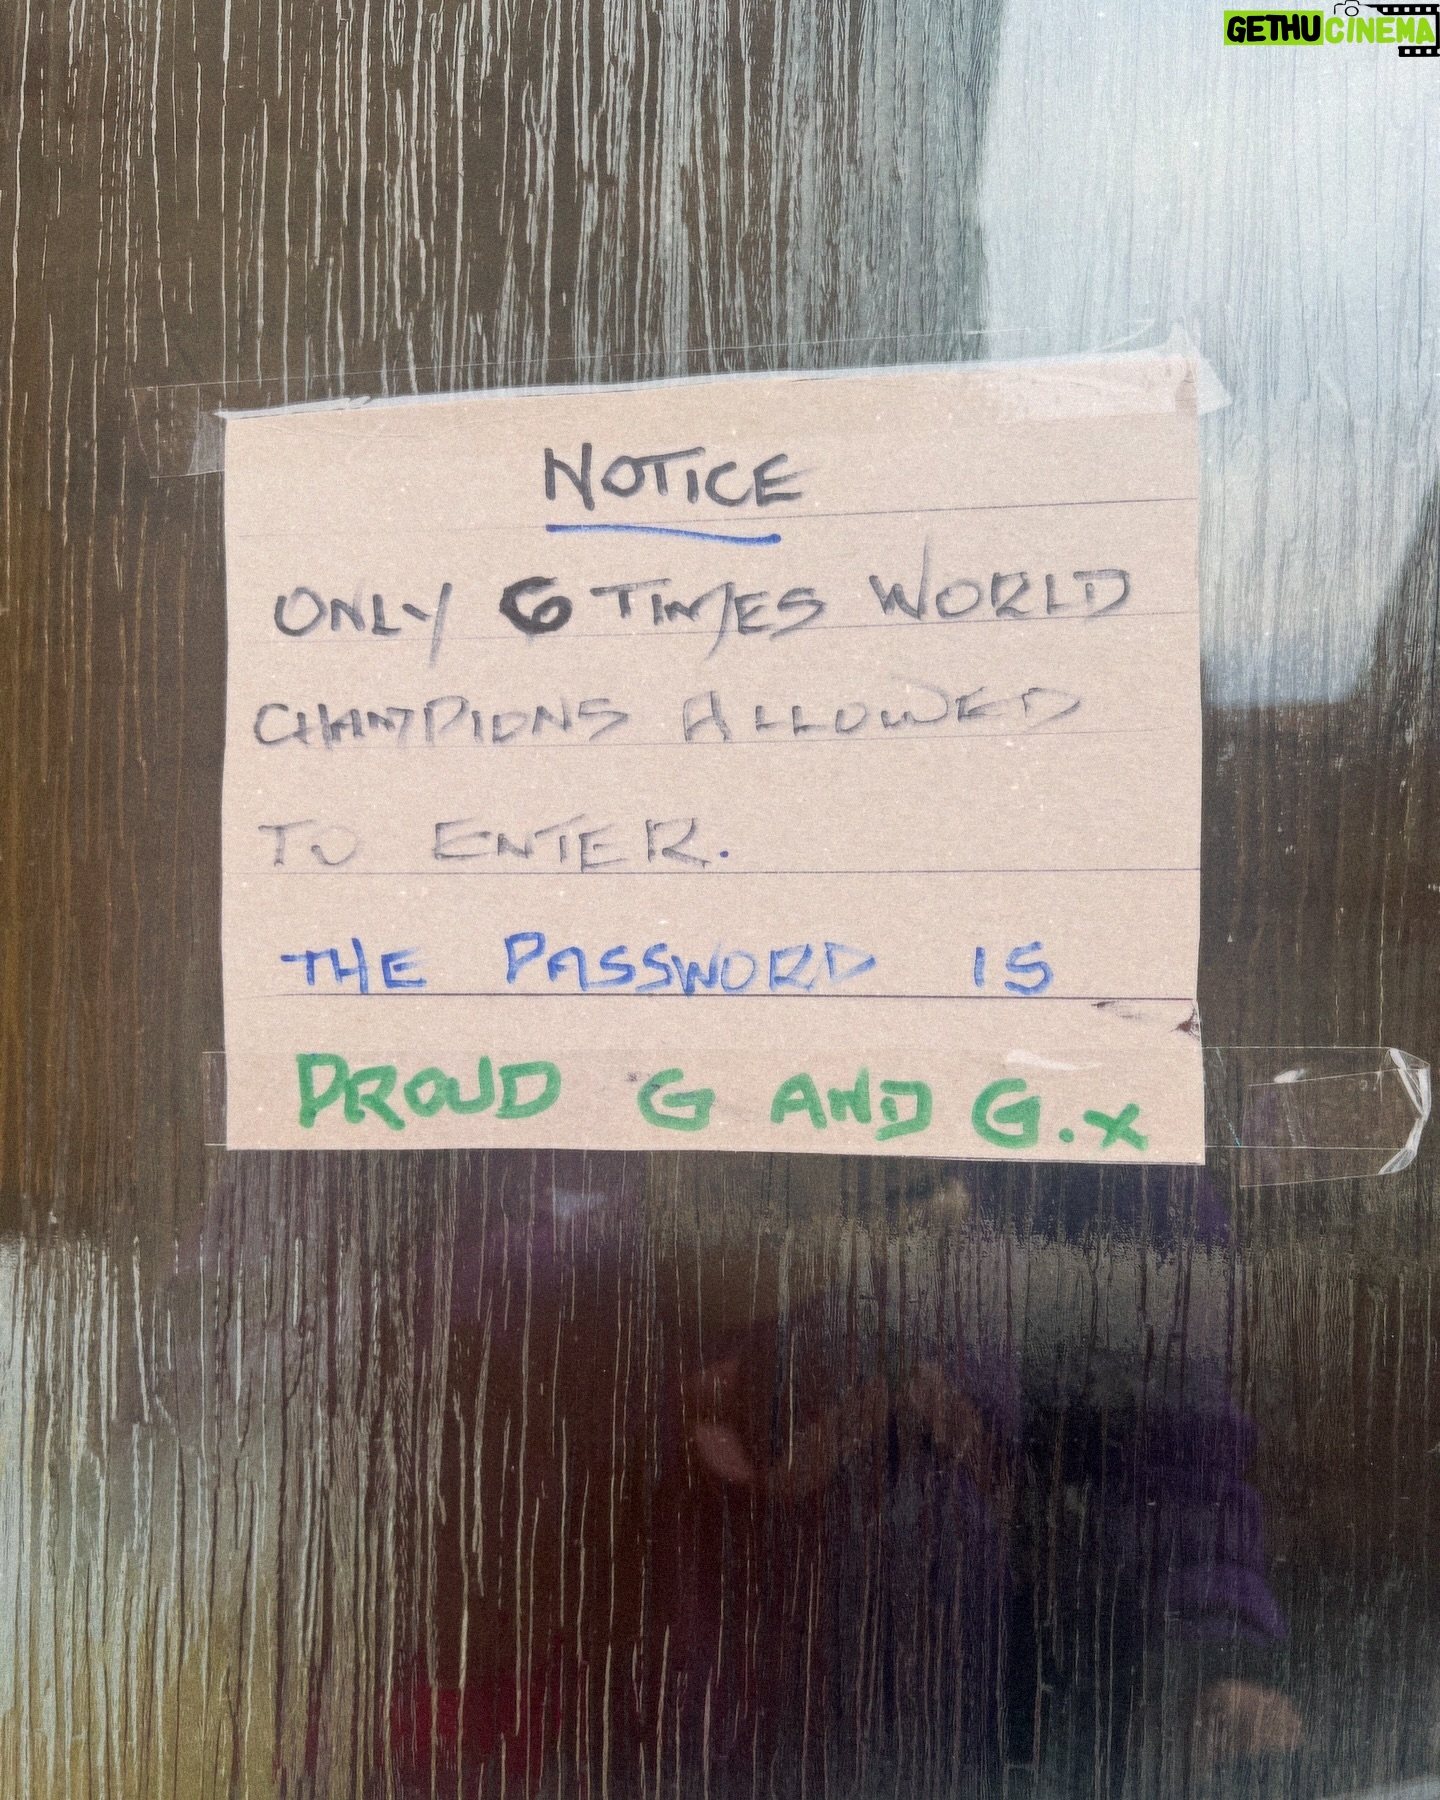 GETHUCINEMA
NOTICE
ONLY 6 TIMES WORLD
CHAMPIONS ALLOWED
TO ENTER.
THE PASSWORD IS
PROUD G AND G.x